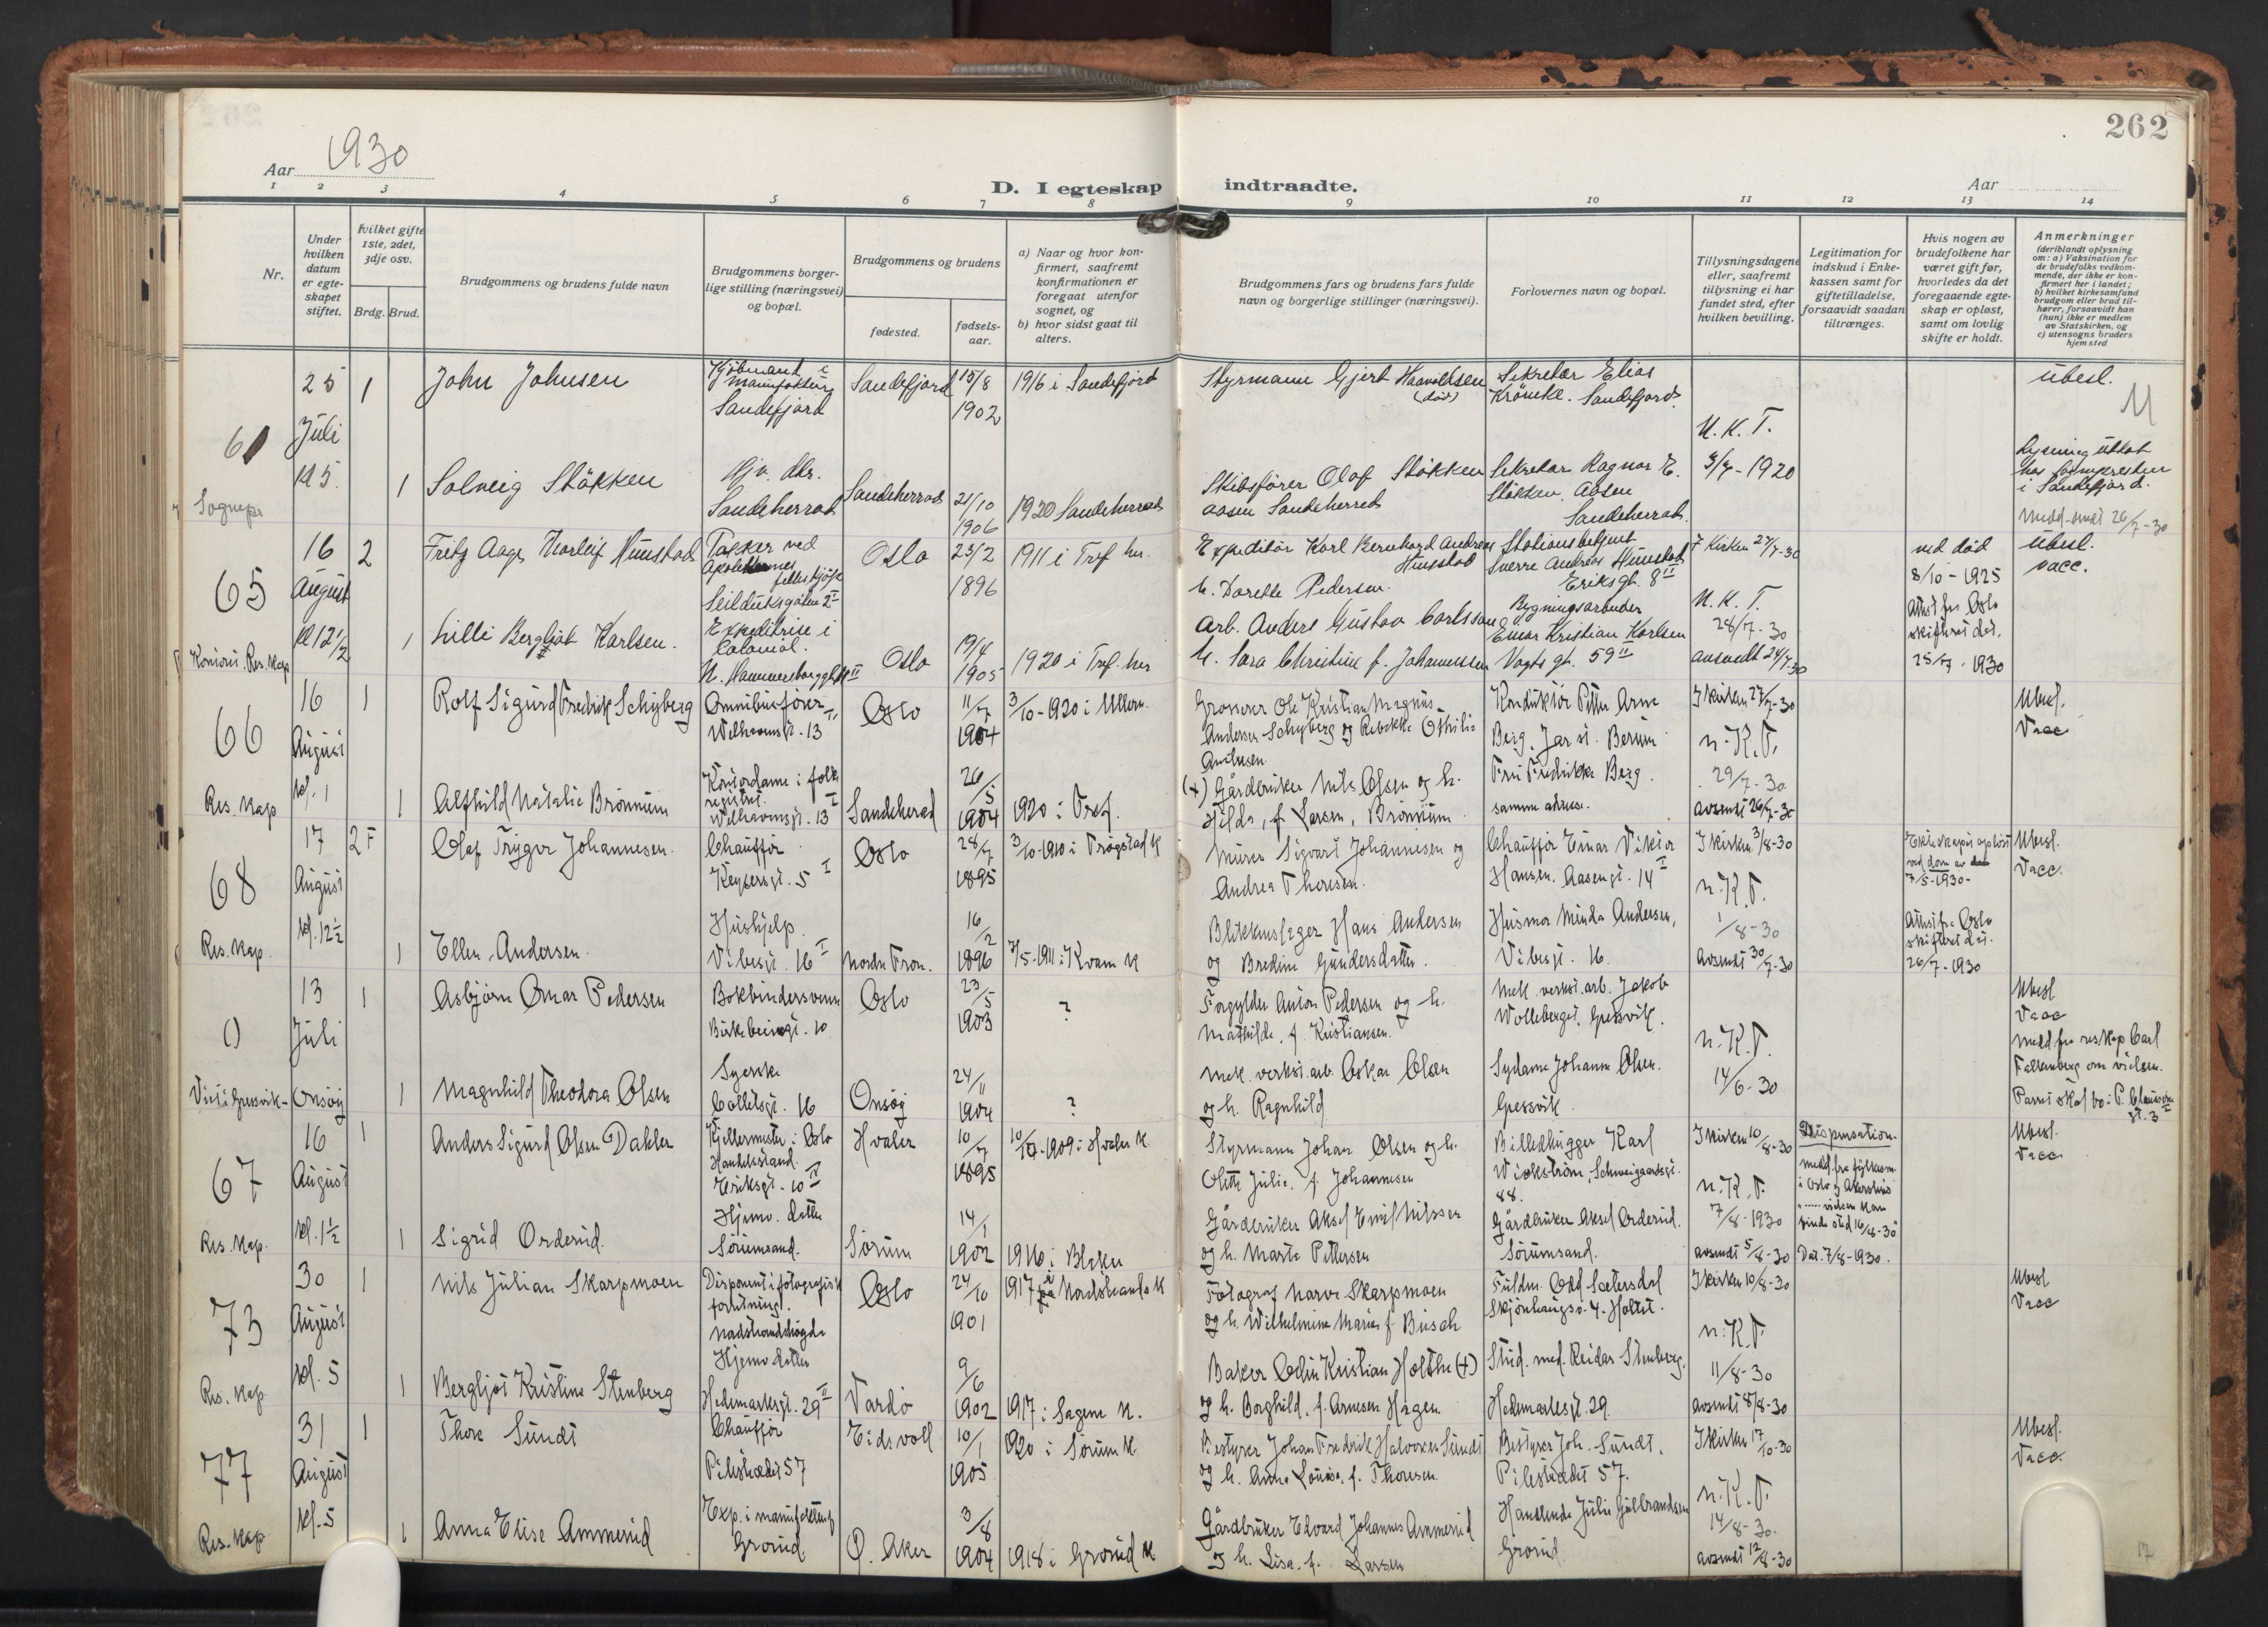 262
Aar 1930
D. I egteskap indtraadte.
Aar
1 2 3 4 5 6 7 8 9 10 11 12 13 14
Nr.
Under hvilken datum er egteskapet stiftet.
Hvilket gifte 1ste, 2det, 3dje osv.
Brdg. Brud.
Brudgommens og brudens fulde navn
Brudgommens borgerlige stilling (næringsvei) og bopæl.
Brudgommens og brudens
fødested.
fødselsaar.
a) Naar og hvor konfirmert, saafremt konfirmationen er foregaat utenfor sognet, og
b) hvor sidst gaat til alters.
Brudgommens fars og brudens fars fulde navn og borgerlige stillinger (næringsvei).
Forlovernes navn og bopæl.
Tillysningsdagene eller, saafremt tillysning ei har fundet sted, efter hvilken bevilling.
Legitimation for indskud i Enkekassen samt for giftetilladelse, forsaavidt saadan tiltrænges.
Hvis nogen av brudefolkene har været gift før, hvorledes da det foregaaende egteskap er opløst, samt om lovlig skifte er holdt.
Anmerkninger
(deriblandt oplysning om: a) Vaksination for de brudefolks vedkommende, der ikke er konfirmert her i landet;
b) hvilket kirkesamfund brudgom eller brud tilhører, forsaavidt han (hun) ikke er medlem av Statskirken, og
c) utensogns bruders hjemsted
61
25 Juli kl 5.
1 John Johnsen
Kjøbmand i Manufaktur Sandefjord
Sandefjord 15/8 1902
1916 i Sandefjord
Styrmann Gjert Haavoldsen (død)
Sekretær Elias Krömcke. Sandefjord.
N. K. T. 3/7-1920
Ubesl.
1 Solveig Stökken
Hjv. dtr. Sandeherrad
Sandeherrad 21/10 1906
1920 Sandeherred
Skibsförer Olaf Stökken Aasen Sandeherred
Sekretær Ragnar E. Stökken, Aasen Sandeherrad.
Lysning uttat hos sognepresten i Sandefjord.
Medd. sendt 26/7-30
65
16 August kl 12 1/2
2 Fritz Aage Thorleif Huustad
Pakker ved Apotekernes felleskjöp Seilduksgaten 2 I
Oslo 23/2 1896
1911 i Tref. her.
Expeditör Karl Bernhard Andreas Huustad h. Dorette Pedersen.
Stationsbetjent Sverre Andreas Huustad Eriksgt. 8 II
I Kirken 27/7-30
N. K. T. 28/7-30
avsendt 24/7-30
ved död 8/10-1925
Attest fra Oslo skifteret dat. 25/7-1930
Ubesl. vacc.
1 Lilli Bergljot Karlsen.
Expeditrise i Colonial.
Oslo 19/4 1905
1920 i Tref. her
Arb. Anders Gustav Carlsson h. Sara Christine f. Johannessen
Bygningsarbeider Einar Kristian Karlsen Vogts gt. 59 II
66
Res. Kap
16 August kl. 1
1 Rolf Sigurd Fredrik Schyberg
Omnibusfører Welhavensgt. 13 I
Oslo 11/7 1904
3/10-1920 i Ullern.
Grosserer Ole Kristian Magnus Andersen Schyberg og Rebekka Othilie
Konduktör Petter Arne Berg, Jar st. Bærum
I kirken 27/7-30
n. K. T. 29/7-30
avsendt 26/7-30
Ubesl. Vacc
1 Alfhild Natalie Brønnum
Kontordame i folkeregistret. Welhavensgt. 13 I
Sandeherad 26/5 1904
1920 i Tref.
(+) Gårdbruker Nils Olsen og h. Hilda, f. Larsen, Brønnum
Fru Fredrikke Berg. samme adresse.
68
Res. Kap.
17 August kl. 12 1/2
2 F Olaf Trygve Johannesen.
Chauffør Keysersgt. 5 I
Oslo 28/7 1895
3/10-1910 i Trøgstad K
Murer Sigvart Johannesen og Andrea Thoresen.
Chauffør Einar Viktor Hansen. Aasengt. 14 I
I kirken 3/8-30
n. K. T. 1/8-30
avsendt 30/7-30
Ekteskapet opløst ved dom av 7/5-1930-
Attest fra Oslo skifteret dat. 26/7-1930
Ubesl. Vacc.
1 Ellen Andersen.
Hushjelp. Vibesgt. 16 I
Nordre Fron. 16/2 1896
7/5-1911 i Kvam K
Blikkenslager Hans Andersen og Bredine Gundersdatter.
Husmor Minda Andersen, Vibesgt. 16.
()
13 Juli
Viet i Gressvik - Onsøy
1 Asbjørn Omar Pedersen
Bokbindersvenn Birkebeinergt. 10
Oslo 23/5 1903
?
Forgylder Anton Pedersen og h. Mathilde, f. Kristiansen.
Mek. verkst. arb. Jakob Wolleberget, Gressvik.
n. K. T. 14/6-30
Ubesl Vacc
medd. fra res. kap Carl Falkenberg om vielsen.
1 Magnhild Theodora Olsen
Syerske Collettsgt. 16
Onsøy 24/11 1904
?
Mek. verkst. arb. Oskar Olsen og h. Ragnhild
Sydame Johanne Olsen. Gressvik.
67
Res. Kap.
16 August kl. 1 1/2
1 Anders Sigurd Olsen Dahler
Kjellermester i Oslo Handelsstand. Eriksgt. 10 IV
Hvaler 10/7 1895
10/10-1909 i Hvaler K
Styrmann Johan Olsen og h. Olette Julie, f. Johannesen
Billedhugger Karl Wickstrøm, Schweigaardsgt. 88.
I kirken 10/8-30
n. K. T. 7/8-1930
avsendt 5/8-30
Dispensation.
medd. fra fylkesm. i Oslo og Akershus vielsen kan finde sted 16/8-30
Dat. 7/8-1930.
Ubesl. Vacc
1 Sigrid Orderud.
Hjemv. datter Sørumsand.
Sørum 14/1 1902
1916 i Blaker
Gårdbruker Aksel Emil Nilssen og h. Marte Pettersen
Gårdbruker Aksel Orderud. Sørumsand.
73
Res. Kap.
30 August kl. 5
1 Nils Julian Skarpmoen
Disponent i fotografisk forretning. Nordstrandshøgda
Oslo 24/10 1901
1917 på Nordstrands K
Fotograf Narve Skarpmoen og h. Wilhelmine Marie f. Busch
Fuldm. Odd Sætersdal Skjönhaugsv. 4. Holtet.
I kirken 10/8-30
n. K. T. 11/8-30
avsendt 8/8-30
Ubesl Vacc
1 Bergljot Kristine Stenberg
Hjemv. datter Hedemarksgt. 29 II
Vardö 9/6 1902
1917 i Sagene K.
Baker Odin Kristian Holthe (+) og h. Borghild, f. Arnesen Hagen.
Stud. med. Reidar Stenberg. Hedemarksgt. 29.
77
Res. Kap.
31 August kl. 5
1 Thore Sundt
Chauffør Pilestrædet 57
Eidsvoll 10/1 1905
1920 i Sørum K
Bestyrer Johan Fredrik Halvorsen Sundt og h. Anna Louise, f. Thoresen.
Bestyrer Joh. Sundt. Pilestrædet 57.
I kirken 17/10-30
n. K. T. 14/8-30.
avsendt 12/8-30
Ubesl. Vacc.
1 Anna Elise Ammerud
Exp. i manufakturf Grorud
Ø. Aker 3/8 1904
1918 i Grorud K
Gårdbruker Edvard Johannes Ammerud og h. Lisa. f. Larsen
Handlende Julie Gulbrandsen Grorud
17